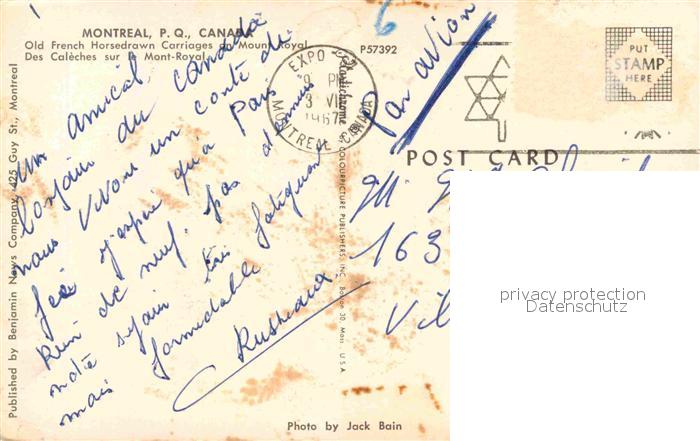 MONTREAL, P. Q., CANADA
Old French Horsedrawn Carriages on Mount Royal
Des Calèches sur le Mont-Royal
P57392
Un amical
bonjour du Canada
nous vivons un conte de
fée j'espère qu'a Paris
Rien de neuf pas d'ennuis
notre sejour très fatiguant
mais formidable
EXPO
9 PM
3 VII
1967
MONTREAL CANADA
Par avion
PUT
STAMP
HERE
POST CARD
M.
163
Vil
privacy protection
Datenschutz
Published by Benjamin News Company, 425 Guy St., Montreal
Plastichrome ® by COLOURPICTURE PUBLISHERS, INC. Boston 30, Mass., U.S.A.
Photo by Jack Bain